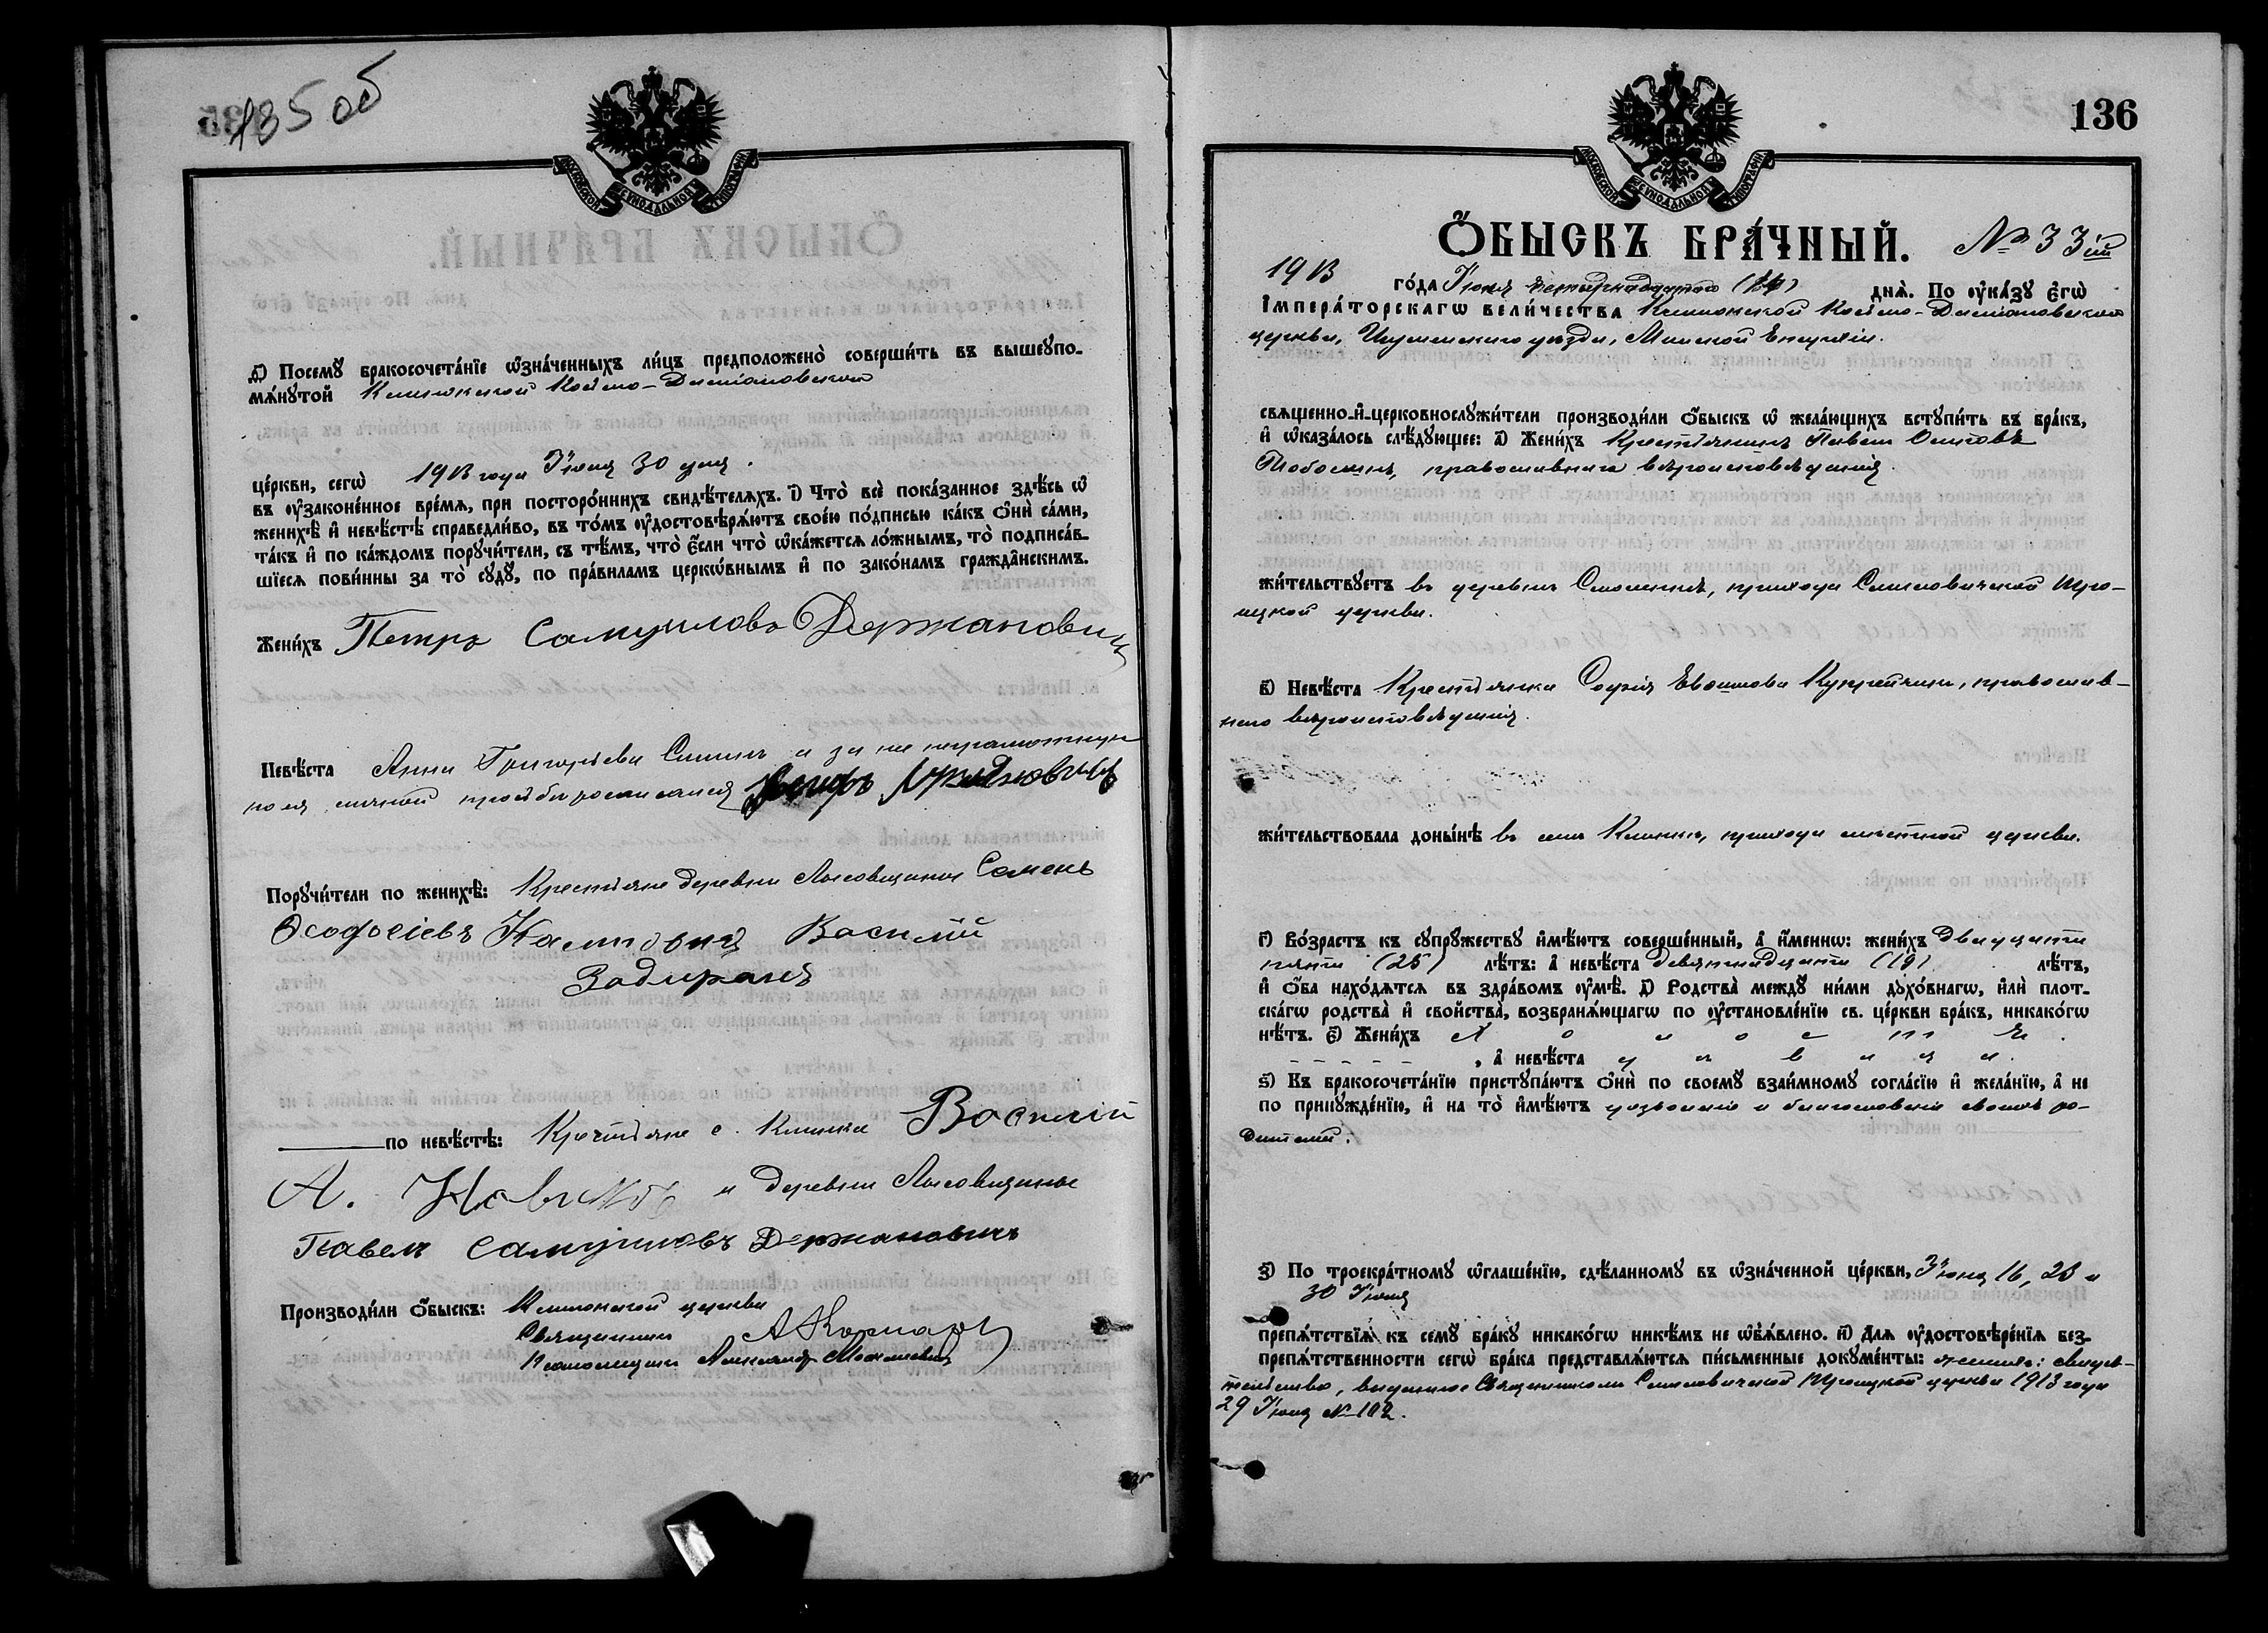 135 об
МОСКОВСКОЙ СѴНОДАЛЬНОЙ ТИПОГРАФІИ
д҃) Посемꙋ̀ бракосочета́нїе ѡ҆зна́ченныхъ ли́цъ предположено̀ соверши́ть въ вышеꙋпо-
мѧ́нꙋтой Клинокской Космо-Даміановской
це́ркви, сегѡ̀ 1913 года Іюня 30 дня.
въ ᲂу҆законе́нное вре́мѧ, при посторо́ннихъ свидѣ́телѧхъ. і҃) Что̀ всѐ пока́занное здѣ́сь ѡ҆
женихѣ̀ и҆ невѣ́стѣ справедли́во, въ то́мъ ᲂу҆достовѣрѧ́ютъ свое́ю по́дписью ка́къ ѻ҆нѝ са́ми,
та́къ и҆ по ка́ждомъ порꙋчи́тели, съ тѣ́мъ, что̀ є҆́сли что̀ ѡ҆ка́жетсѧ ло́жнымъ, то̀ подписа́в-
шїесѧ пови́нны за то̀ сꙋдꙋ̀, по пра́виламъ церко́внымъ и҆ по зако́намъ гражда́нскимъ.
Жени́хъ Петръ Самуиловъ Держановичъ
Невѣ́ста Анна Григорьева и за не неграмотную
по ея личной просьбе росписался
Порꙋчи́тели по женихѣ̀: Крестьяне деревни Лысовщины Семенъ
Ѳеофосіевъ Василій
Задиранъ
по невѣ́стѣ: Крестьяне с. Клинка Василій
А. Новикъ и деревни Лысовщины
Павелъ Самуиловъ Держановичъ
Производи́ли ѻ҆́быскъ: Клинокской церкви
Священникъ
Псаломщикъ Александръ
136
МОСКОВСКОЙ СѴНОДАЛЬНОЙ ТИПОГРАФІИ
Ѻ҆́БЫСКЪ БРА́ЧНЫЙ. № 33ій
1913 го́да Іюня четырнадцатаго (14) днѧ̀. По ᲂу҆ка́зꙋ є҆гѡ̀
І҆мпера́торскагѡ вели́чества Клинокской Космо-Даміановской
церкви, Игуменскаго уѣзда, Минской Епархіи.
свѧщенно-и҆-церковнослꙋжи́тели производи́ли ѻ҆́быскъ ѡ҆ жела́ющихъ встꙋпи́ть въ бра́къ,
и҆ ѡ҆каза́лось слѣ́дꙋющее: а҃) Жени́хъ Крестьянинъ Павелъ Осиповъ
православнаго вѣроисповѣданія.
жи́тельствꙋетъ въ деревнѣ прихода Смиловичской Тро-
ицкой церкви.
в҃) Невѣ́ста Крестьянка Софія Купрейчикъ, православ-
наго вѣроисповѣданія.
жи́тельствовала доны́нѣ въ селѣ Клинкѣ, прихода мѣстной церкви.
г҃) Во́зрастъ къ сꙋпрꙋ́жествꙋ и҆мѣ́ютъ соверше́нный, а҆ и҆́меннѡ: жени́хъ двадцати
пяти (25) лѣ́тъ: а҆ невѣ́ста девятнадцати (19) лѣ́тъ,
и҆ ѻ҆́ба нахо́дѧтсѧ въ здра́вомъ ᲂу҆мѣ̀. д҃) Родства̀ междꙋ̀ ни́ми дꙋхо́внагѡ, и҆лѝ плот-
ска́гѡ родства̀ и҆ сво́йства̀, возбранѧ́ющагѡ по ᲂу҆становле́нїю св. це́ркви бра́къ, никако́гѡ
нѣ́тъ. є҃) Жени́хъ х о л о с т ъ.
, а҆ невѣ́ста д ѣ в и ц а.
ѕ҃) Къ бракосочета́нїю пристꙋпа́ютъ ѻ҆нѝ по своемꙋ̀ взаи́мномꙋ согла́сїю и҆ жела́нїю, а҆ не
по принꙋжде́нїю, и҆ на то̀ и҆мѣ́ютъ дозволеніе и благословеніе своихъ ро-
дителей.
з҃) По троекра́тномꙋ ѡ҆глаше́нїю, сдѣ́ланномꙋ въ ѡ҆зна́ченной це́ркви, Іюня 16, 23 и
30 Іюня
препѧ́тствїѧ къ семꙋ̀ бра́кꙋ никако́гѡ никѣ́мъ не ѡ҆б̾ѧ́влено. и҃) Длѧ̀ ᲂу҆достовѣре́нїѧ без-
препѧ́тственности сегѡ̀ бра́ка представлѧ́ютсѧ пи́сьменные докꙋме́нты: жениха: свидѣ-
тельство, выданное Священникомъ Смиловичской Троицкой церкви 1913 года
29 Іюня № 102.